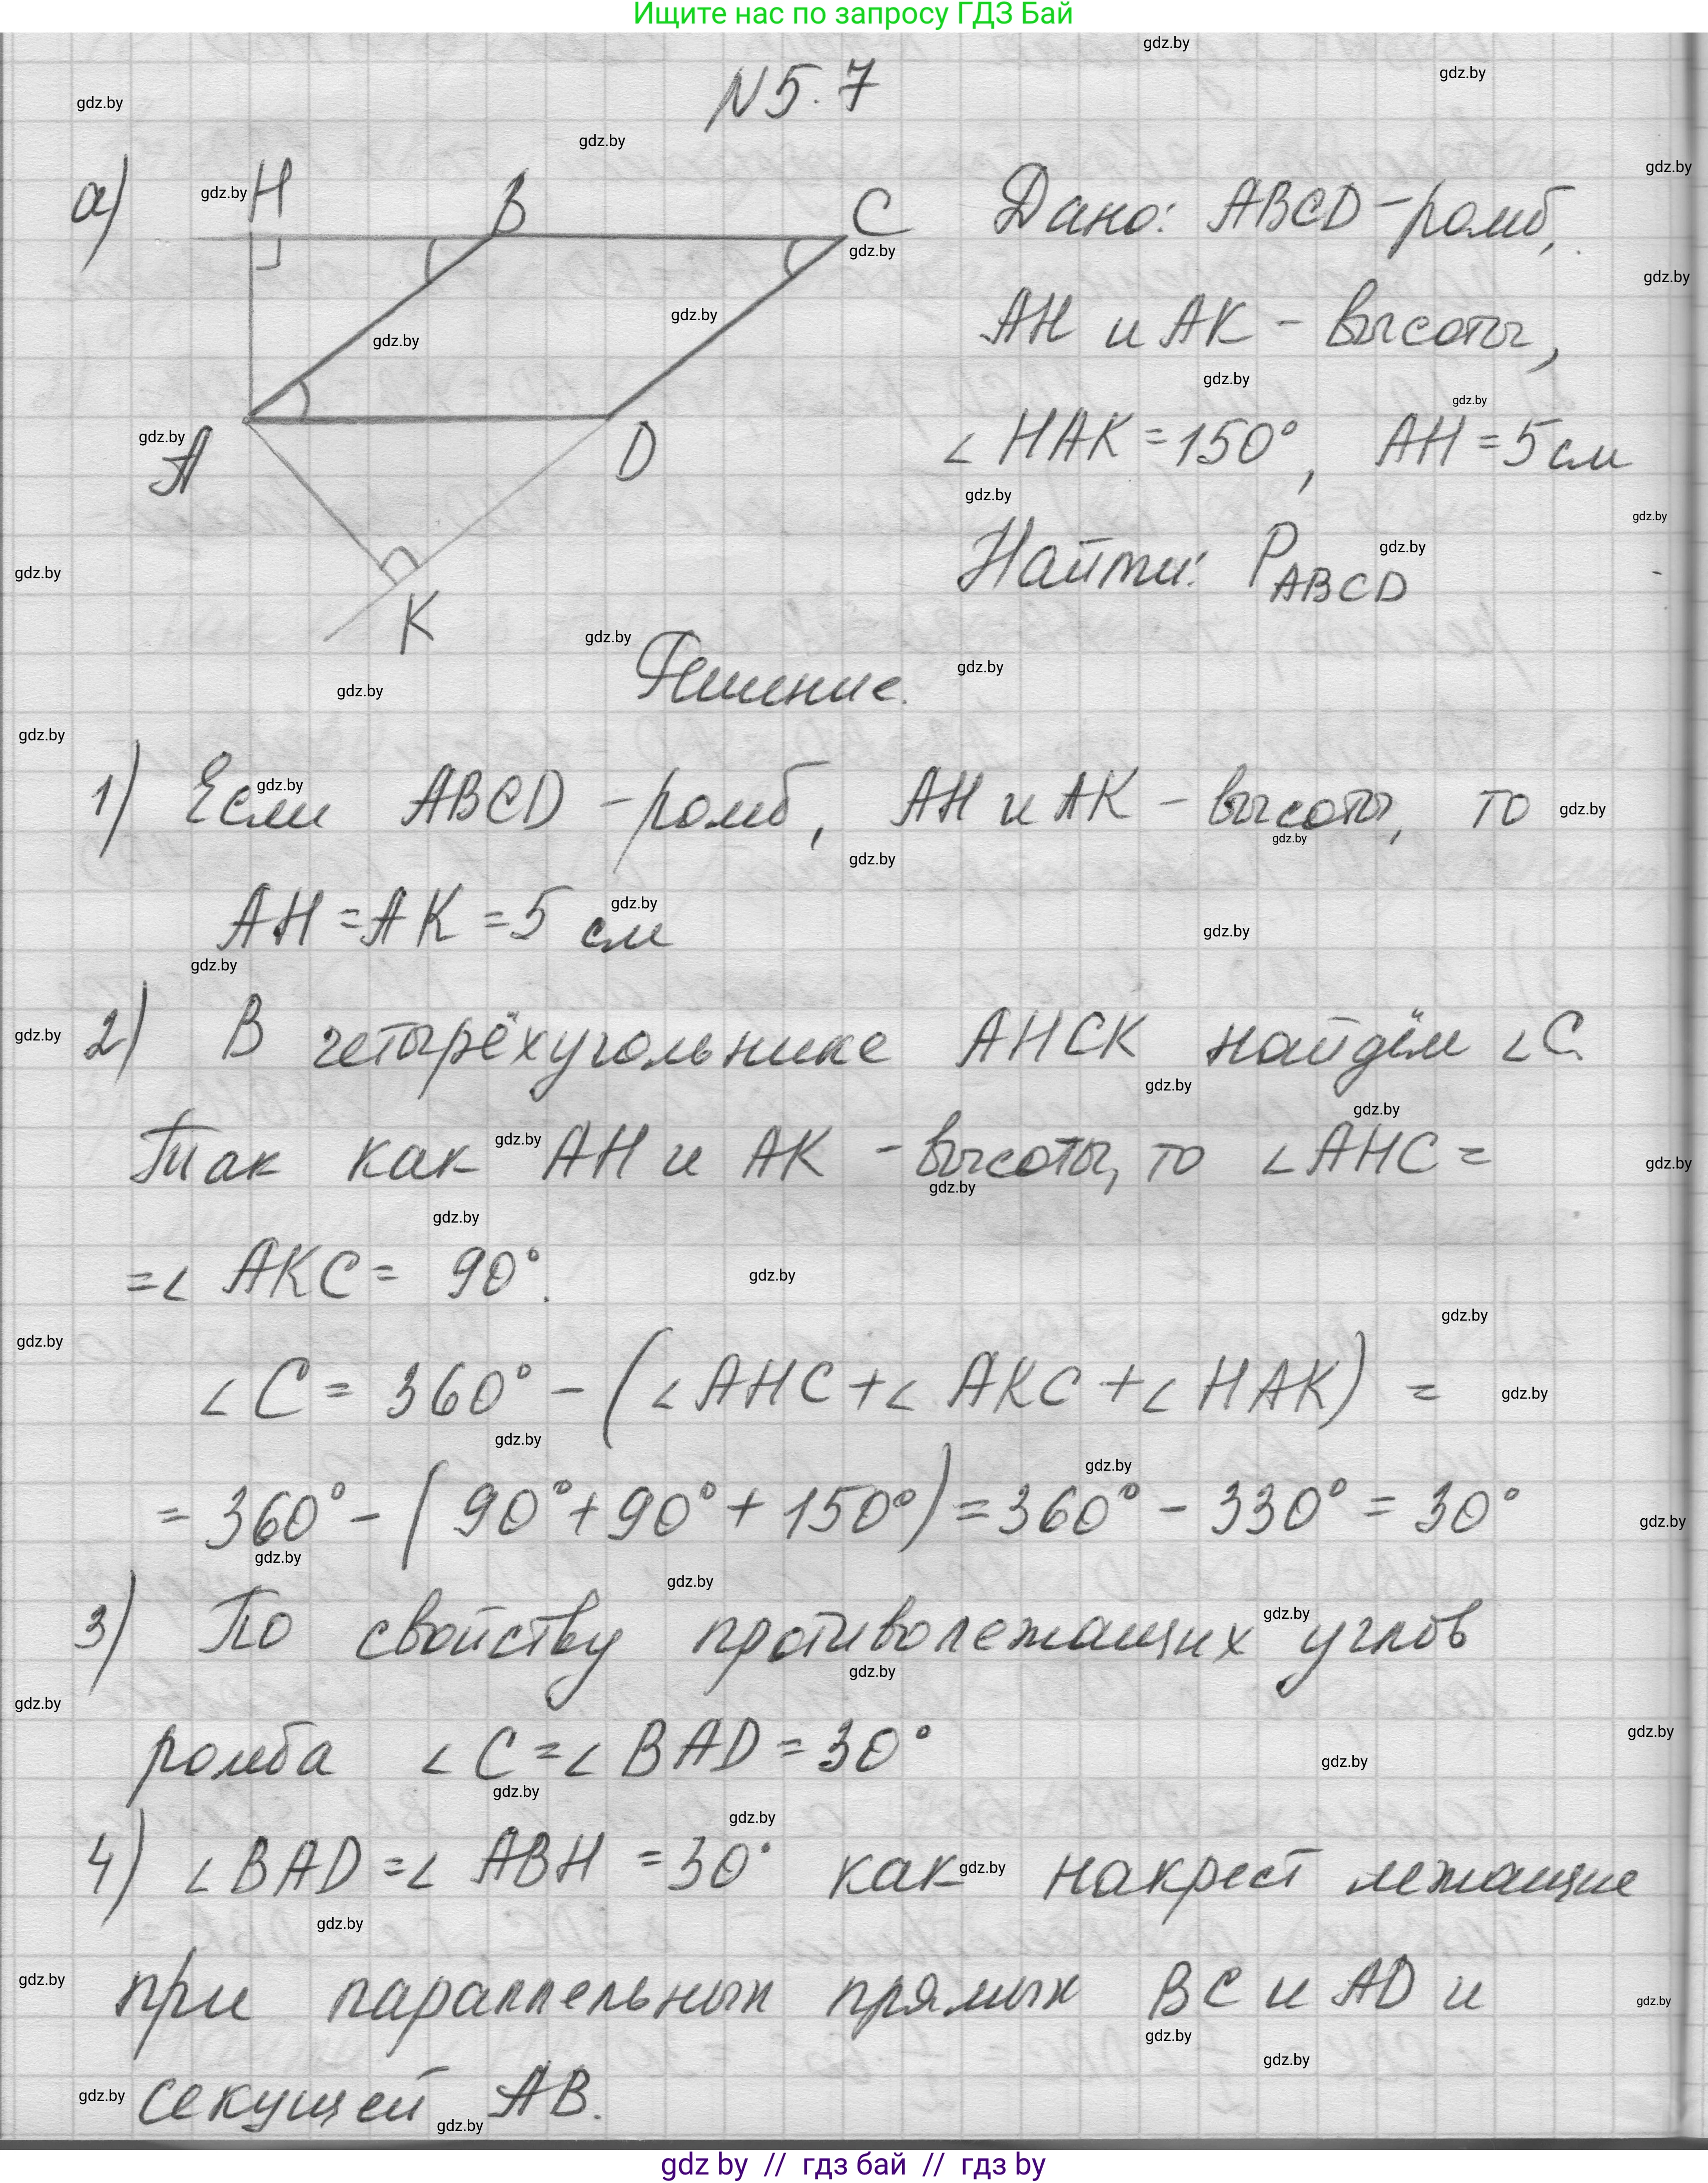 Ищите нас по запросу ГДЗ Бай
N 5.7
а)
H
B
C
A
D
K
Дано: ABCD - ромб,
AH и AK - высоты,
∠HAK = 150°, AH = 5 см
Найти: P ABCD
Решение.
1) Если ABCD - ромб, AH и AK - высоты, то
AH = AK = 5 см
2) В четырёхугольнике AHCK найдём ∠C.
Так как AH и AK - высоты, то ∠AHC =
= ∠AKC = 90°.
∠C = 360° - (∠AHC + ∠AKC + ∠HAK) =
= 360° - (90° + 90° + 150°) = 360° - 330° = 30°
3) По свойству противолежащих углов
ромба ∠C = ∠BAD = 30°
4) ∠BAD = ∠ABH = 30° как накрест лежащие
при параллельных прямых BC и AD и
секущей AB.
gdz by // гдз бай // гдз by